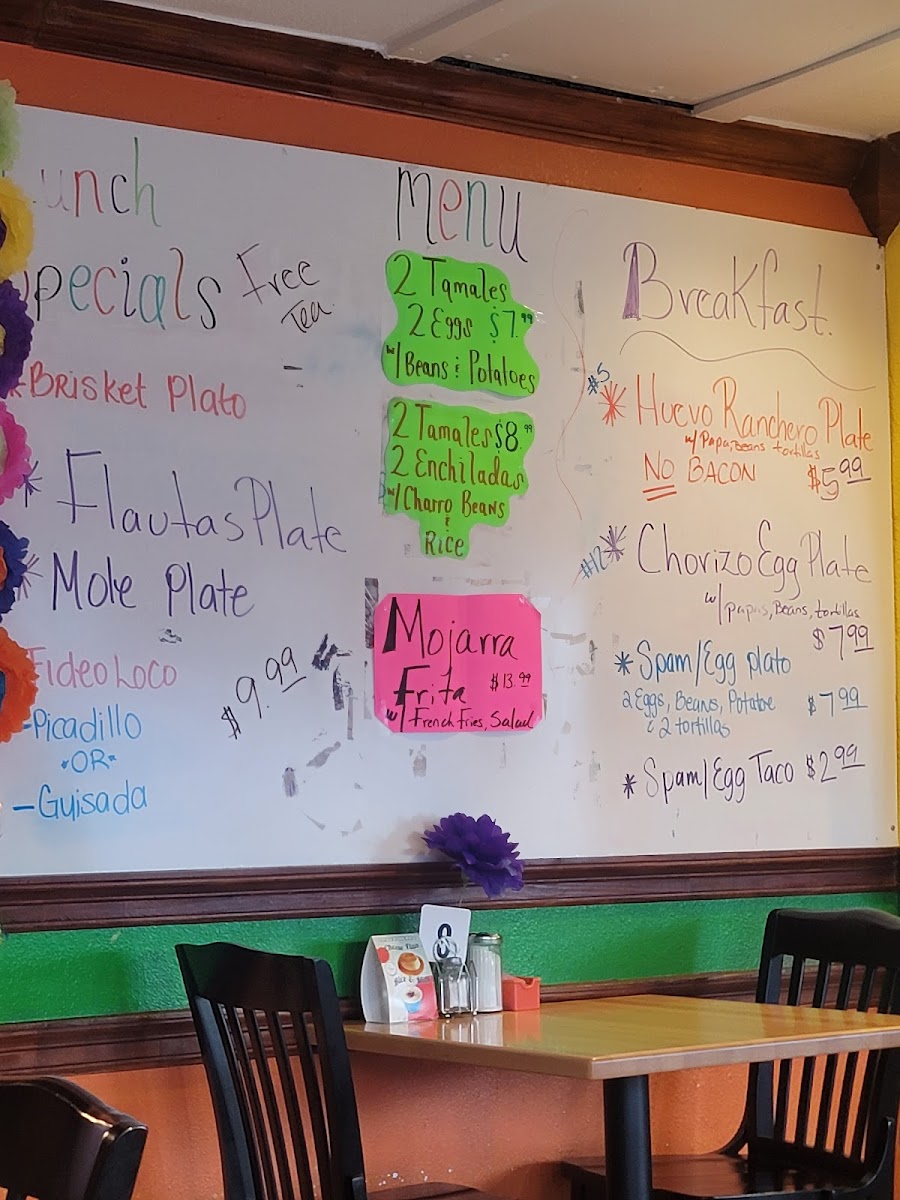 unch
pecials
Free
Tea
Brisket Plato
* Flautas Plate
* Mole Plate
Fideo Loco
-Picadillo
*OR*
-Guisada
$9.99
menu
2 Tamales
2 Eggs $7.99
w/Beans & Potatoes
2 Tamales $8.99
2 Enchiladas
w/Charro Beans
&
Rice
Mojarra
Frita $13.99
w/ French Fries, Salad
Breakfast.
#5
* Huevo Ranchero Plate
w/Papa, beans tortillas
NO BACON $5.99
#12
* Chorizo Egg Plate
w/papas, Beans, tortillas
$7.99
* Spam/Egg plato
2 Eggs, Beans, Potatoe $7.99
& 2 tortillas
* Spam/Egg Taco $2.99